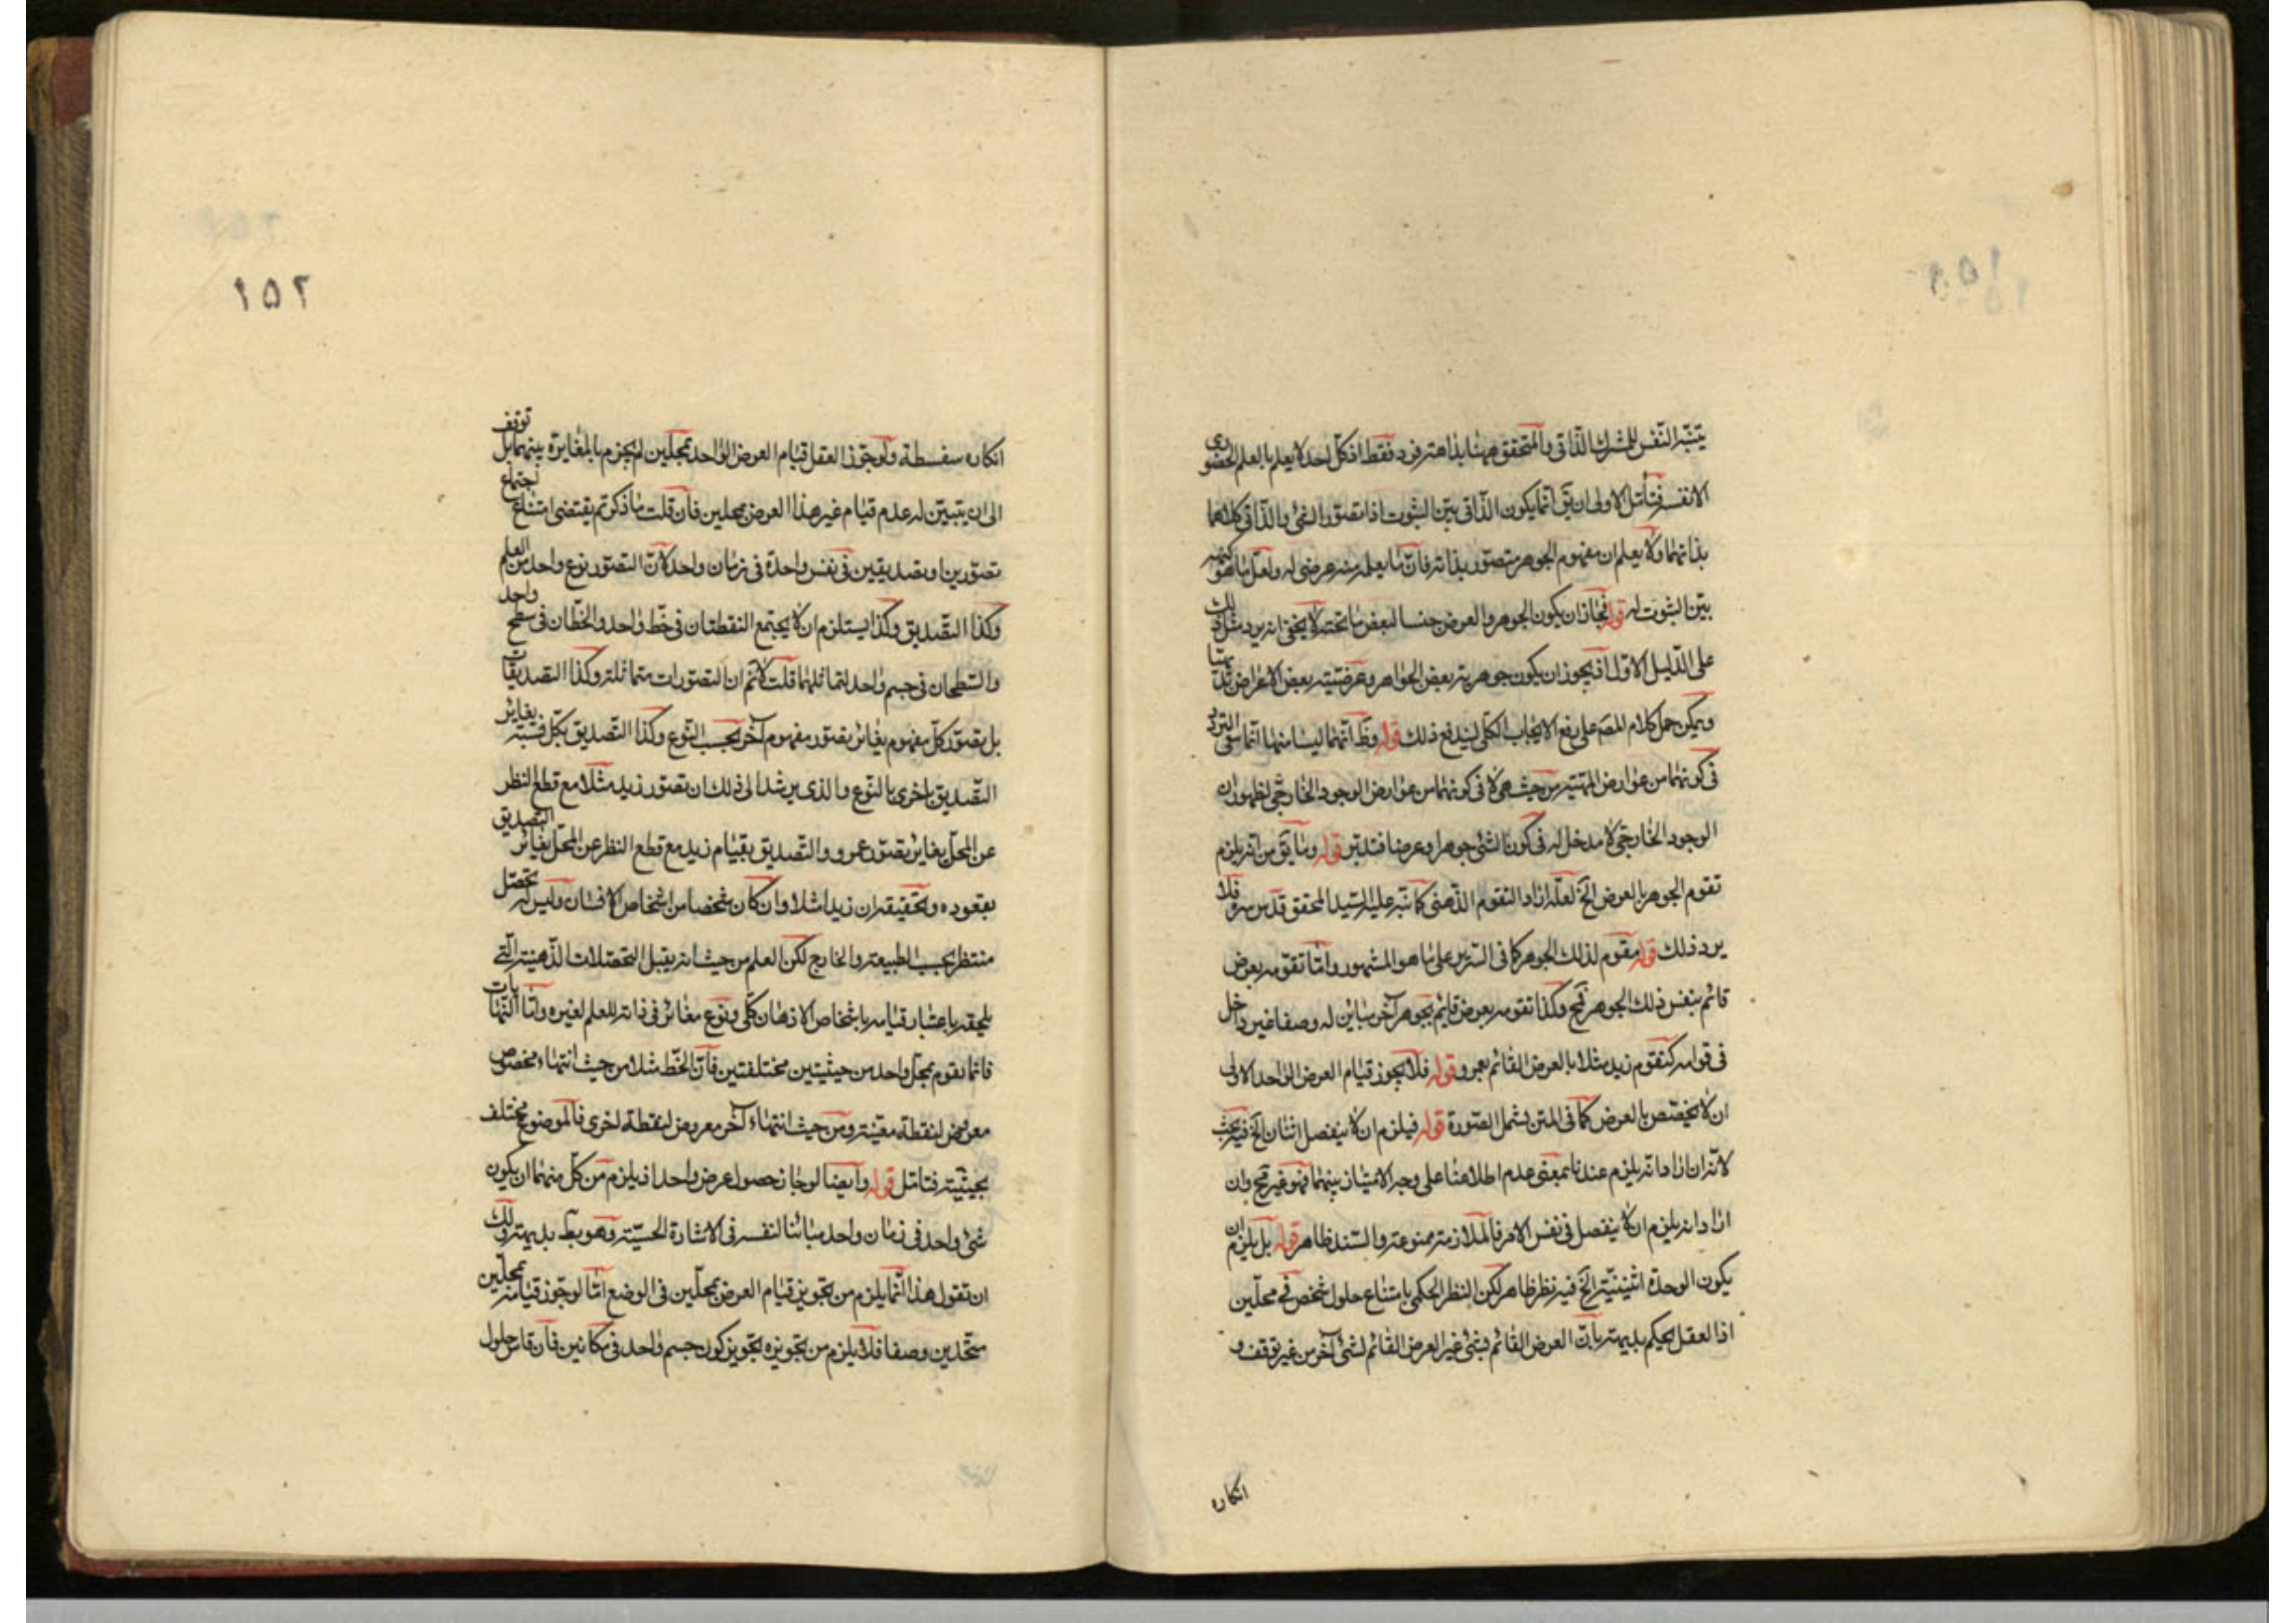 يتنبّه النفس للمشترك الذاتي والمتحقق ههنا بذاهته فرد فقط اذ كل احد لا يعلم بالعلم الحضوري
الا نفسه فتأمّل الاولى ان يق انما يكون الذاتي بيّن الثبوت اذا تصوّر الشئ والذاتي كلاهما
بذاتهما ولا يعلم ان مفهوم الجوهر متصوّر بذاته فان ما يعلم منه عرضى له ولعلّ ما هو كنهه
بيّن الثبوت له قوله فجاز ان يكون الجوهر والعرض جنسا لبعض ما تحته لا يخفى انه يرد مثل ذلك
على الدّليل الاوّل اذ يجوز ان يكون جوهرية بعض الجواهر وعرضيّة بعض الاعراض
ويمكن حمل كلام المصّ على رفع الايجاب الكلّى ليندفع ذلك قوله وظّ انهما ليسا منها انما
فى كونهما من عوارض المهيّة من حيث هى لا فى كونهما من عوارض الوجود الخارجى لظهور ان
الوجود الخارجى لا مدخل له فى كون الشئ جوهرا وعرضا فتدبّر قوله وما يق من انه يلزم
تقوم الجوهر بالعرض الخ لعلّه اراد التقوم الذّهنى كما نبّه عليه السّيد المحقق قدس سره فلا
يرد ذلك قوله مقوم لذلك الجوهر كما فى السّرير على ما هو المشهور وامّا تقوّمه بعرض
قائم بنفس ذلك الجوهر فمح وكذا تقومه بعرض قايم بجوهر آخر مباين له وصفا غير داخل
فى قوامه كتقوم زيد مثلا بالعرض القائم بعمرو قوله فلا يجوز قيام العرض الواحد الاولى
ان لا يخصّص بالعرض كما فى المتن ليشمل الصّورة قوله فيلزم ان لا ينفصل اثنان الخ فيه بحث
لانّه ان اراد انه يلزم عندنا بمعنى عدم اطلاعنا على وجه الامتياز بينهما فهو غير مح وان
اراد انه يلزم ان لا ينفصل فى نفس الامر فالملازمة ممنوعة والسّند ظاهر قوله بل يلزم ان
يكون الوحدة اثنينيّة الخ فيه نظر ظاهر لكن النظر الحكمى بامتناع حلول شخص فى محلّين
اذ العقل يحكم بديهة بانّ العرض القائم بشئ غير العرض القائم لشئ آخر من غير توقف و
انكاره
١٥٢
انكاره سفسطة ولو جوّز العقل قيام العرض الواحد بمحلّين لم يجزم بالمغايرة بينهما بل توقف
الى ان يتبيّن له عدم قيام غير هذا العرض بمحلين فان قلت ما ذكرتم يقتضى امتناع اجتماع
تصوّرين او تصديقين فى نفس واحدة فى زمان واحد لانّ التصوّر نوع واحد من العلم
وكذا التّصديق وكذا يستلزم ان لا يجتمع النقطتان فى خطّ واحد والخطّان فى سطح واحد
والسّطحان فى جسم واحد لتماثلهما قلت لا نم ان التصوّرات متماثلة وكذا التصديقات
بل تصوّر كلّ مفهوم يغاير تصوّر مفهوم آخر بحسب النّوع وكذا التّصديق بكلّ نسبة يغاير
التّصديق باخرى بالنّوع والذى يرشد الى ذلك ان تصوّر زيد مثلا مع قطع النظر
عن المحلّ يغاير تصوّر عمرو والتّصديق بقيام زيد مع قطع النظر عن المحلّ يغاير التصديق
بقعوده وتحقيقه ان زيدا مثلا وان كان شخصا من اشخاص الانسان وليس له تحصّل
منتظر بحسب الطبيعة والخارج لكن العلم من حيث انه يقبل التحصّلات الذّهنيّة الّتى
يلحقه باعتبار قيامه باشخاص الاذهان كلّى ونوع مغاير فى ذاته للعلم لغيره وامّا النّهايات
فانما تقوم بمحلّ واحد من حيثيتين مختلفتين فانّ الخطّ مثلا من حيث انتهاء مخصوص
معروض لنقطة معيّنة ومن حيث انتهاء آخر معروض لنقطة اخرى فالموضوع مختلف
بحيثيّة فتامّل قوله وايضا لو جاز حصول عرض واحد اذ يلزم من كلّ منهما ان يكون
شئ واحد فى زمان واحد مبائنا لنفسه فى الاشارة الحسّيّة وهو بط بديهة ولك
ان تقول هذا انّما يلزم من تجويز قيام العرض بمحلّين فى الوضع امّا لو جوّز قيامه بمحلّين
متّحدين وصفا فلا يلزم من تجويزه تجويز كون جسم واحد فى مكانين فان قاس حلول